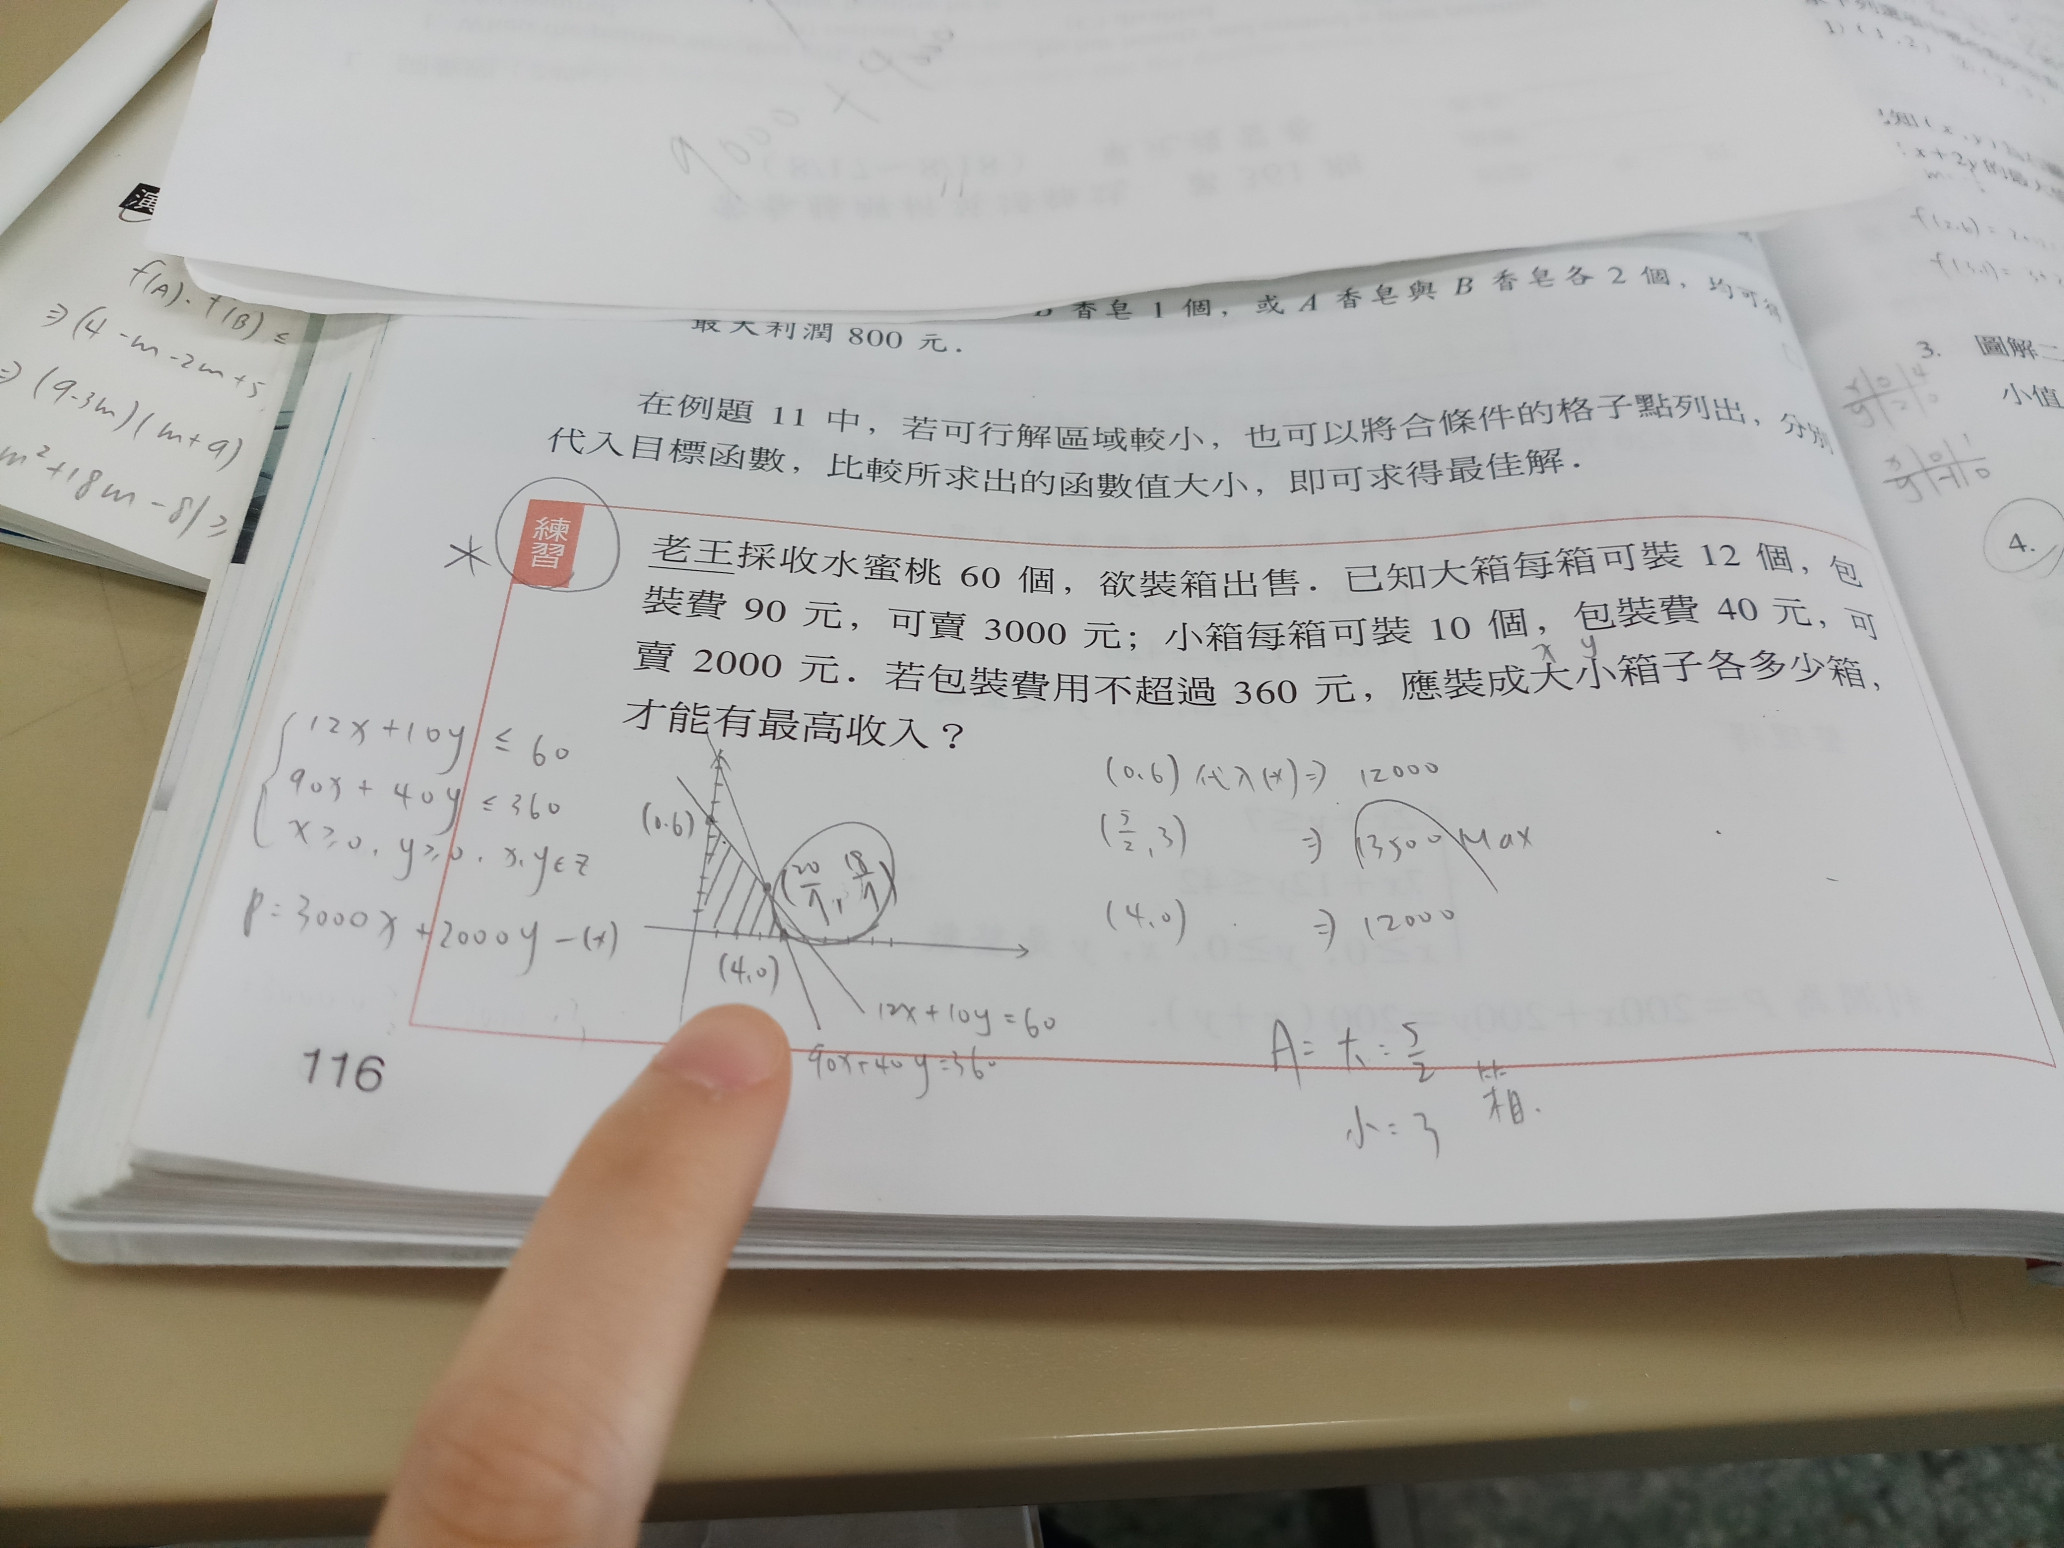 9000 × 900
演
f(A)·f(B) ≤
⇒ (4-m-2m+5
⇒ (9-3m)(m+9)
m²+18m-81≥
香皂 1 個，或 A 香皂與 B 香皂各 2 個，均可得
最大利潤 800 元．
在例題 11 中，若可行解區域較小，也可以將合條件的格子點列出，分別
代入目標函數，比較所求出的函數值大小，即可求得最佳解．
練習
老王採收水蜜桃 60 個，欲裝箱出售．已知大箱每箱可裝 12 個，包
裝費 90 元，可賣 3000 元；小箱每箱可裝 10 個，包裝費 40 元，可
x y
賣 2000 元．若包裝費用不超過 360 元，應裝成大小箱子各多少箱，
才能有最高收入？
12x+10y ≤ 60
90x+40y ≤ 360
x≥0, y≥0, x,y∈Z
P=3000x+2000y-(*)
(0.6)
(20/7, 18/7)
(4,0)
12x+10y=60
90x+40y=360
(0.6) 代入(*)⇒ 12000
(5/2, 3) ⇒ 13500 Max
(4,0) ⇒ 12000
A= 大=5/2 箱.
小=3
116
1) (1,2)
x+2y的最大
f(2.6)=
3. 圖解二
小值
x 0 4
y 2 0
x 0 1
y -1 0
4.